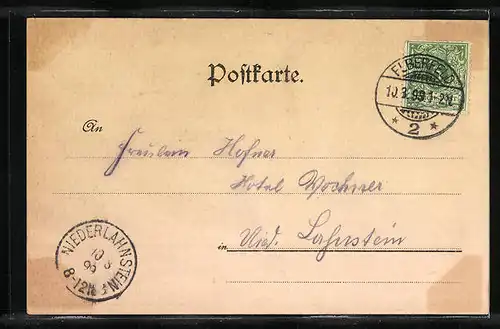 Postkarte.
ELBERFELD
10.3.99.1-2N.
* 2 *
An
Fräulein Hefner
Hotel
in Nied. Lahnstein
NIEDERLAHNSTEIN
10 3
99
8-12N